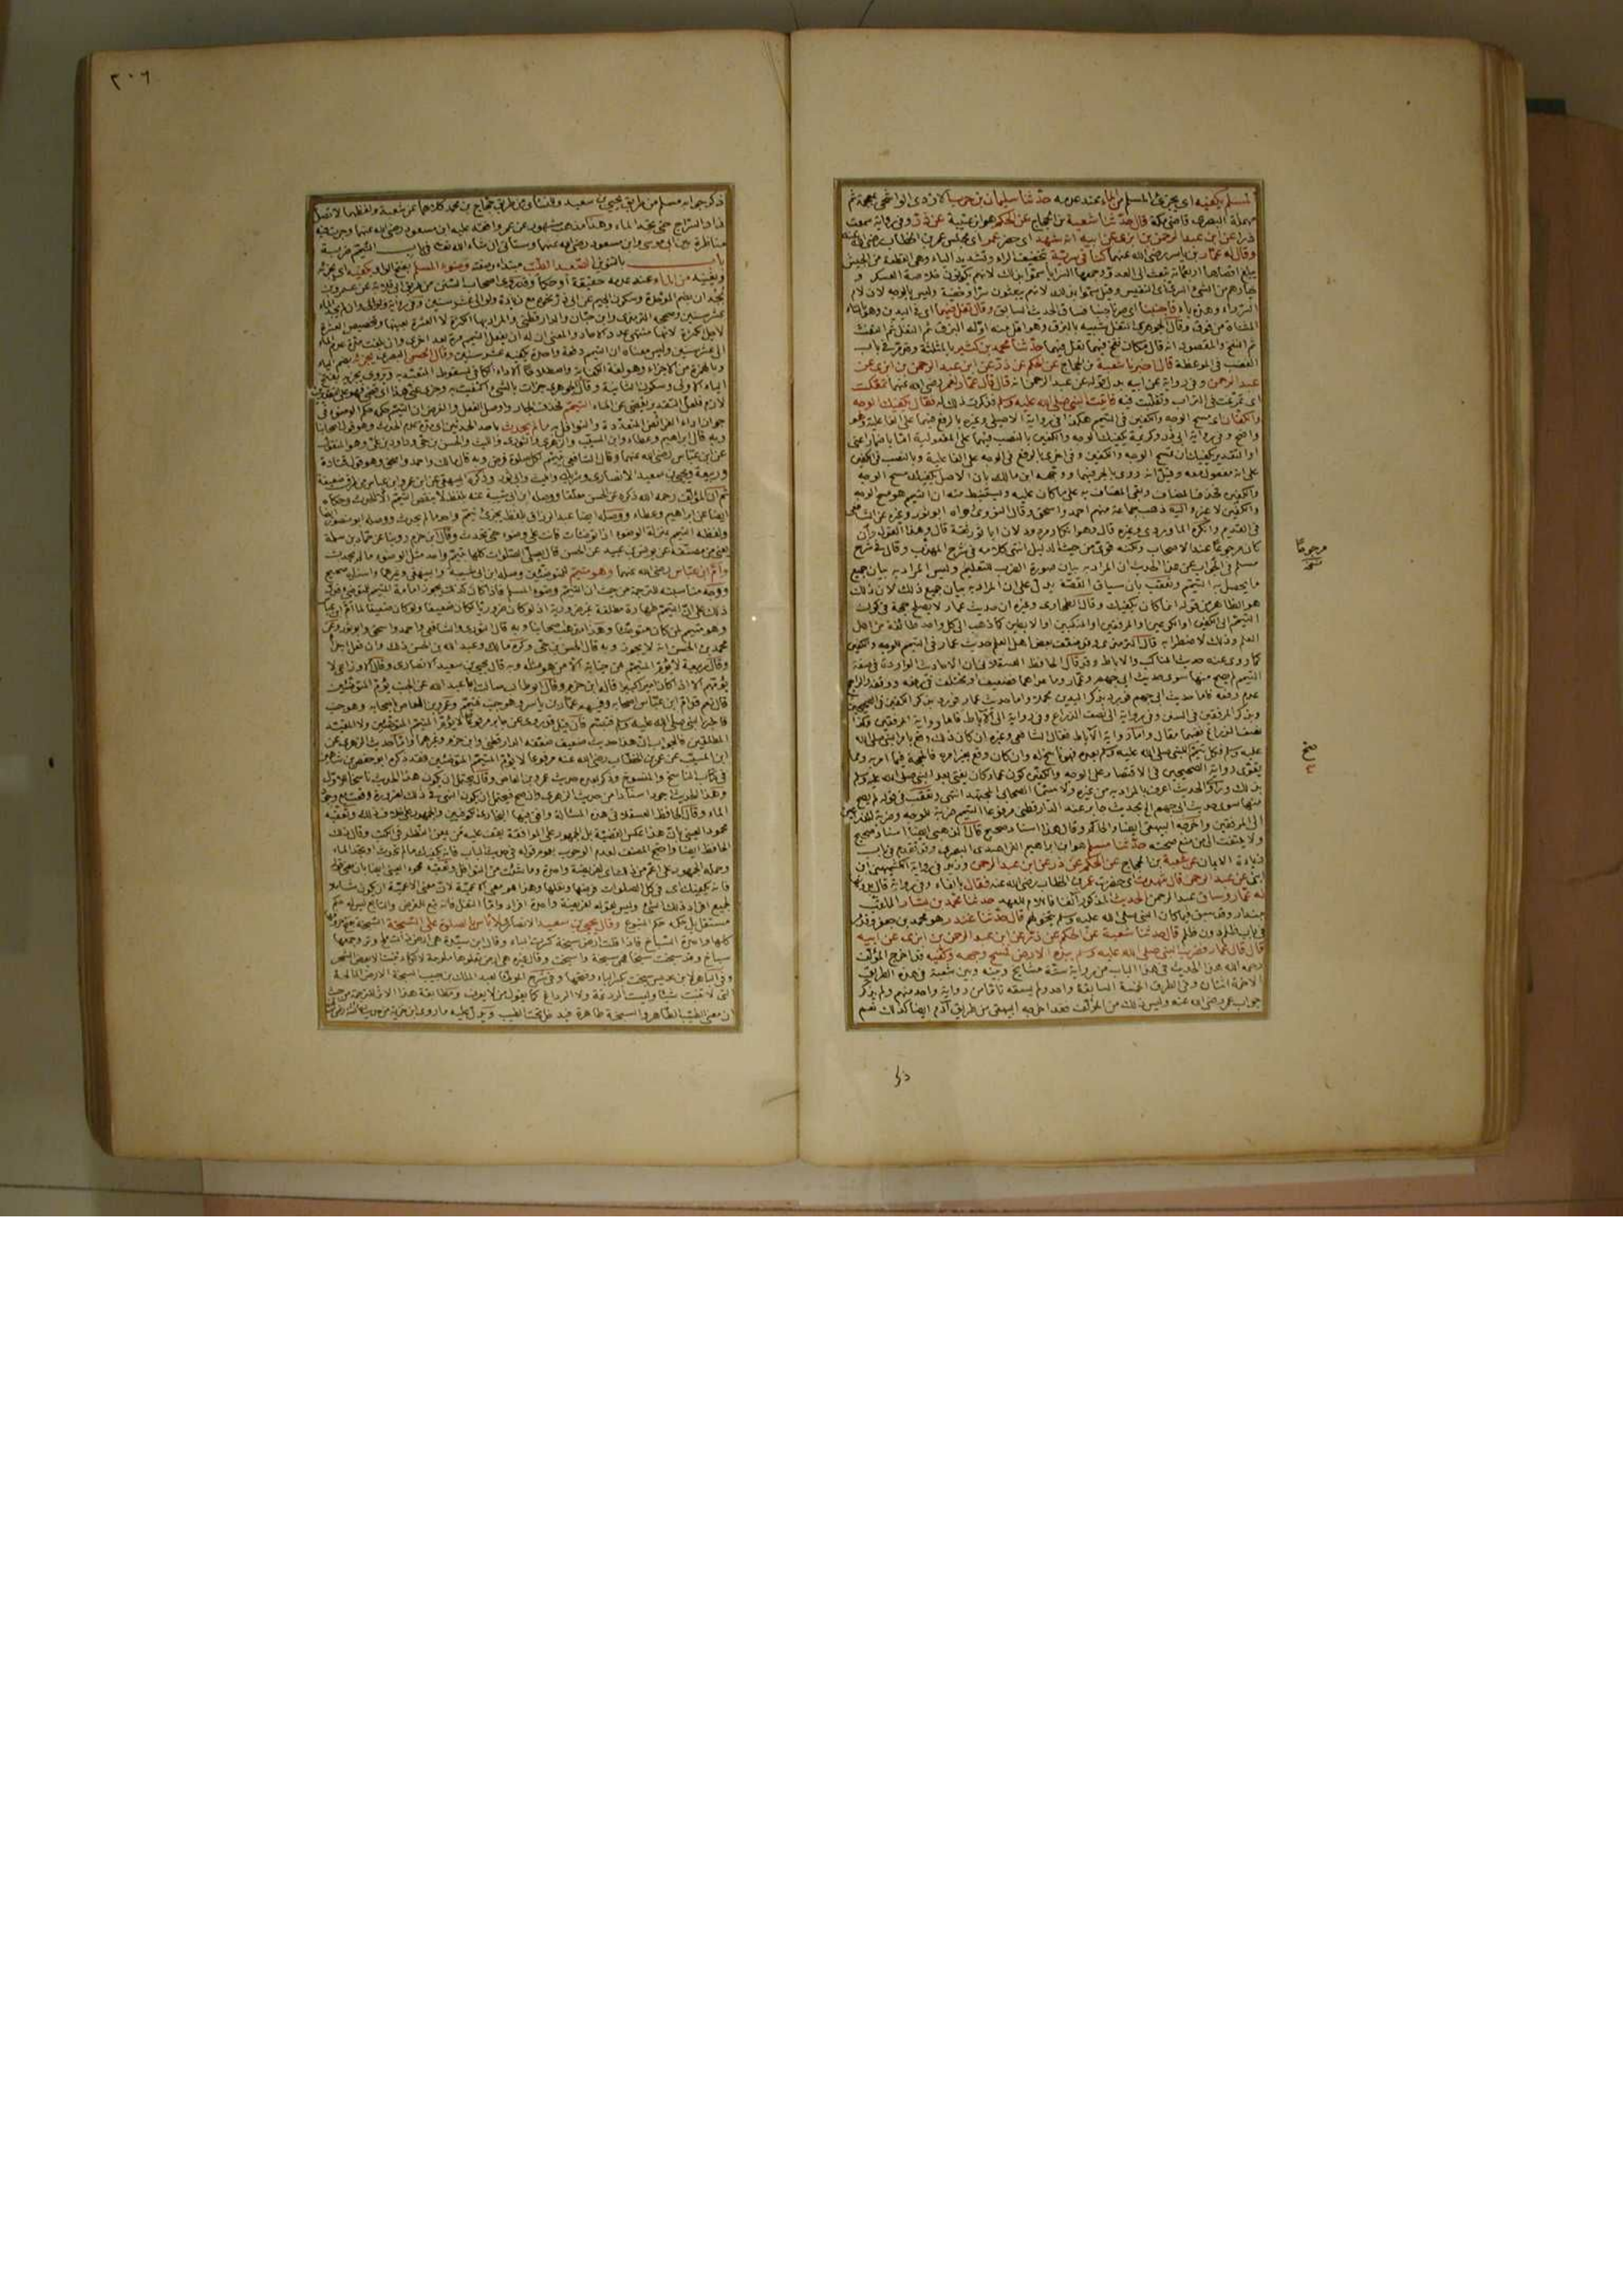 المسلم يكفيه اى يجزئ المسلم من الماء عند عدمه حدثنا سليمان بن حرب الازدى الواشحى بمعجمة ثم
مهملة البصرى قاضى مكة قال حدثنا شعبة بن الحجاج عن الحكم هو ابن عتيبة عن ذر وفى رواية سمعت
ذرا عن ابن عبد الرحمن بن ابزى عن ابيه انه شهد اى حضر عمر اى مجلس عمر بن الخطاب رضى الله عنه
وقال له عمار بن ياسر رضى الله عنهما كنا فى سرية بتخفيف الراء وتشديد الياء وهى القطعة من الجيش
يبلغ اقصاها اربعمائة تبعث الى العدو وجمعها السرايا سموا بذلك لانهم يكونون خلاصة العسكر و
خيارهم من الشئ السرى اى النفيس وقيل سموا بذلك لانهم يبعثون سرا وخفية وليس بالوجه لان لام
السر راء وهذه ياء فاجنبنا اى صرنا جنبا فساق الحديث السابق وقال تفل فيهما اى فى اليدين وهو بالتاء
المثناة من فوق وقال الجوهرى التفل شبيه بالبزق وهو اقل منه اوله البزق ثم التفل ثم النفث
ثم النفخ والمقصود انه قال مكان نفخ فيهما تفل فيهما حدثنا محمد بن كثير بالمثلثة وقد مر فى باب
الغضب فى الموعظة قال اخبرنا شعبة بن الحجاج عن الحكم عن ذر عن ابن عبد الرحمن بن ابزى عن
عبد الرحمن وفى رواية عن ابيه بدل قوله عن عبد الرحمن انه قال قال عمار لعمر رضى الله عنهما تمعكت
اى تمرغت فى التراب وتقلبت فيه فاتيت النبى صلى الله عليه وسلم فذكرت ذلك له فقال يكفيك الوجه
والكفان اى مسح الوجه والكفين فى التيمم هكذا فى رواية الاصيلى وغيره بالرفع فيهما على الفاعلية وهو
واضح وفى رواية ابى ذر وكريمة يكفيك الوجه والكفين بالنصب فيهما على المفعولية اما باضمار اعنى
او التقدير يكفيك ان تمسح الوجه والكفين وفى اخرى بالرفع فى الوجه على الفاعلية وبالنصب فى الكفين
على انه مفعول معه وقيل انه روى بالجر فيهما ووجهه ابن مالك بان الاصل يكفيك مسح الوجه
والكفين فحذف المضاف وبقى المضاف به على ما كان عليه ويستنبط منه ان التيمم هو مسح الوجه
والكفين لا غير واليه ذهب جماعة منهم احمد واسحق وقال النووى رواه ابو ثور وغيره عن الشافعى
فى القديم وانكره الماوردى وغيره قال وهو انكار مردود لان ابا ثور ثقة قال وهذا القول وان
كان مرجوعا عند الاصحاب ولكنه قوى من حيث الدليل انتهى كلامه فى شرح المهذب وقال فى شرح
مسلم فى الجواب عن هذا الحديث ان المراد به بيان صورة الضرب للتعليم وليس المراد به بيان جميع
ما يحصل به التيمم وتعقب بان سياق القصة يدل على ان المراد به بيان جميع ذلك لان ذلك
هو الظاهر من قوله انما كان يكفيك وقال الطحاوى وغيره ان حديث عمار لا يصلح حجة فى كون
التيمم الى الكفين او الكوعين او المرفقين او المنكبين او الابطين كما ذهب الى كل واحد طائفة من اهل
العلم وذلك لاضطرابه قال الترمذى وقد ضعف بعض اهل العلم حديث عمار فى التيمم الوجه والكفين
لما روى عنه حديث المناكب والاباط وقد قال الحافظ العسقلانى ان الاحاديث الواردة فى صفة
التيمم لم يصح منها سوى حديث ابى جهيم وعمار وما عداهما فضعيف او مختلف فى رفعه ووقفه والراجح
عدم رفعه فاما حديث ابى جهيم فورد بذكر اليدين مجملا واما حديث عمار فورد بذكر الكفين فى الصحيحين
وبذكر المرفقين فى السنن وفى رواية الى نصف الذراع وفى رواية الى الاباط فاما رواية المرفقين وكذا
نصف الذراع ففيهما مقال واما رواية الاباط فقال الشافعى وغيره ان كان ذلك وقع بامر النبى صلى الله
عليه وسلم فكل تيمم للنبى صلى الله عليه وسلم بعده فهو ناسخ له وان كان وقع بغير امره فالحجة فيما امر به ومما
يقوى رواية الصحيحين فى الاقتصار على الوجه والكفين كون عمار كان يفتى بعد النبى صلى الله عليه وسلم
بذلك وراوى الحديث اعرف بالمراد به من غيره ولا سيما الصحابى المجتهد انتهى وتعقب فى قوله لم يصح
منها سوى حديث ابى جهيم الخ بحديث جابر عند الدارقطنى مرفوعا التيمم ضربة للوجه وضربة للذراعين
الى المرفقين واخرجه البيهقى ايضا والحاكم وقال هذا اسناد صحيح وقال الذهبى ايضا اسناد صحيح
ولا يلتفت الى من منع صحته حدثنا مسلم هو ابن ابراهيم الفراهيدى البصرى وقد تقدم فى باب
زيادة الايمان عن شعبة بن الحجاج عن الحكم عن ذر عن ابن عبد الرحمن وزيد فى رواية الكشميهنى ابن
ابزى عن عبد الرحمن قال شهدت اى حضرت عمر بن الخطاب رضى الله عنه فقال بالفاء وفى رواية قال بدونها
له عمار وساق عبد الرحمن الحديث المذكور آنفا فالام للعهد حدثنا محمد بن بشار الملقب
ببندار وقد سبق فيما كان النبى صلى الله عليه وسلم يتخولهم قال حدثنا غندر هو محمد بن جعفر وقد مر
فى باب ظلم دون ظلم قال حدثنا شعبة عن الحكم عن ذر عن ابن عبد الرحمن بن ابزى عن ابيه
قال قال عمار فضرب النبى صلى الله عليه وسلم بيده الارض فمسح وجهه وكفيه فقد اخرج المؤلف
رحمه الله هذا الحديث فى هذا الباب من رواية ستة مشايخ وبينه وبين شعبة فى هذه الطريق
الاخيرة اثنان وفى الطرف الخمسة السابقة واحد ولم يسقه تاما من رواية واحد منهم ولم يذكر
جواب عمر رضى الله عنه وليس ذلك من المؤلف فقد اخرجه البيهقى من طريق آدم ايضا كذلك نعم
مرجوحا
نسخه
صح
ذكر
٢٠٦
ذكر جوابه مسلم من طريق يحيى بن سعيد والنسائى من طريق حجاج بن محمد كلاهما عن شعبة ولفظهما لا تصل
زاد السراج حتى تجد الماء وهذا مذهب مشهور عن عمر وافقه عليه ابن مسعود رضى الله عنهما وجرت فيه
مناظرة بين ابى موسى وابن مسعود رضى الله عنهما وستأتى ان شاء الله تعالى فى باب التيمم ضربة
باب بالتنوين الصعيد الطيب مبتدأ وصفته وضوء المسلم بفتح الواو يكفيه اى يجزئه
ويغنيه من الماء عند عدمه حقيقة او حكما وقد روى اصحاب السنن من طريق ابى قلابة عن عمرو بن
بجدان بضم الموحدة وسكون الجيم عن ابى ذر نحوه مع زيادة ولو الى عشر سنين وفى رواية ولو الى وان لم يجد الماء
عشر سنين وصححه الترمذى وابن حبان والدارقطنى والمراد بها الكثرة لا العشرة بعينها وتخصيص العشرة
لاجل الكثرة لانها منتهى عدد الآحاد والمعنى ان له ان يفعل التيمم مرة بعد اخرى وان بلغت مدة عدم الماء
الى عشر سنين وليس معناه ان التيمم دفعة واحدة يكفيه عشر سنين وقال الحسن البصرى يجزئه بضم الياء
وبالهمزة من الاجزاء وهو لغة الكفاية واصطلاحا الاداء الكافى لسقوط التعبد به ويروى يجزيه بفتح
الياء الاولى وسكون الثانية وقال الجوهرى جزأت بالشئ اكتفيت به وجزى عنى هذا اى قضى فهو على التقديرين
لازم فلعل التقدير يقضى عن الماء التيمم فحذف الجار واوصل الفعل والغرض ان التيمم حكمه حكم الوضوء فى
جواز اداء الفرائض المتعددة والنوافل به ما لم يحدث باحد الحدثين اى مدة عدم الحدث وهو قول اصحابنا
وبه قال ابراهيم وعطاء وابن المسيب والزهرى والثورى والليث والحسن بن حى وداود بن على وهو المنقول
عن ابن عباس رضى الله عنهما وقال الشافعى يتيمم لكل صلاة فرض وبه قال مالك واحمد واسحق وهو قول قتادة
وربيعة ويحيى بن سعيد الانصارى وشريك والليث وابى ثور وذكره البيهقى عن ابن عمر وابن عباس من طرق ضعيفة
ثم ان المؤلف رحمه الله ذكره عن الحسن معلقا ووصله ابن ابى شيبة عنه بلفظ لا ينقض التيمم الا الحدث وحكاه
ايضا عن ابراهيم وعطاء ووصله ايضا عبد الرزاق بلفظ يجزئ تيمم واحد ما لم يحدث ووصله ابو منصور ايضا
ولفظه التيمم بمنزلة الوضوء اذا توضأت فانت على وضوء حتى تحدث وقال ابن حزم وروينا عن حماد بن سلمة
يعنى من مصنفه عن يونس بن عبيد عن الحسن قال يصلى الصلوات كلها بتيمم واحد مثل الوضوء ما لم يحدث
وأم ابن عباس رضى الله عنهما وهو متيمم المتوضئين وصله ابن ابى شيبة والبيهقى وغيرهما واسناده صحيح
ووجه مناسبته للترجمة من حيث ان التيمم وضوء المسلم فاذا كان كذلك يجوز امامة المتيمم للمتوضئ فدل
ذلك على ان التيمم طهارة مطلقة غير ضرورية اذ لو كان ضروريا لكان ضعيفا ولو كان ضعيفا لما أم ابن عباس
وهو متيمم لمن كان متوضئا وهذا مذهب اصحابنا وبه قال الثورى والشافعى واحمد واسحق وابو ثور وعن
محمد بن الحسن انه لا يجوز وبه قال الحسن بن حى وكره مالك وعبد الله بن الحسن ذلك وان فعل اجزأ
وقال ربيعة لا يؤم المتيمم من جنابة الا من هو مثله وبه قال يحيى بن سعيد الانصارى وقال الاوزاعى لا
يؤمهم الا اذا كان اميرا كبيرا قاله ابن حزم وقال ابو طالب سألت ابا عبد الله عن الجنب يؤم المتوضئين
قال نعم قد أم ابن عباس اصحابه وفيهم عمار بن ياسر وهو جنب فتيمم وعمرو بن العاص اصحابه وهو جنب
فاخبر النبى صلى الله عليه وسلم فتبسم فان قيل قد روى عن جابر مرفوعا لا يؤم المتيمم المتوضئين ولا المقيد
المطلقين فالجواب ان هذا حديث ضعيف ضعفه الدارقطنى وابن حزم وغيرهما واما حديث الزهرى عن
ابن المسيب عن عمر بن الخطاب رضى الله عنه مرفوعا لا يؤم المتيمم المتوضئين فقد ذكره ابو حفص بن شاهين
فى كتاب الناسخ والمنسوخ وذكر بعده حديث عمرو بن العاص وقال يحتمل ان يكون هذا الحديث ناسخا للاول
وهذا الحديث اجود اسنادا من حديث الزهرى وان صح فيحتمل ان يكون النهى فى ذلك لضرورة وقعت مع وجود
الماء وقال الحافظ العسقلانى هذه المسألة وافق فيها البخارى الكوفيين والجمهور على خلاف ذلك وتعقبه
محمود العينى بان هذا عكس القضية بل الجمهور على الموافقة يقف عليه من يمعن النظر فى الكتب وقال ذلك
الحافظ ايضا واحتج المصنف لعدم الوجوب بعموم قوله فى حديث الباب فانه يكفيك ما لم تحدث او تجد الماء
وحمله الجمهور على اعم من ذلك اى لفريضة واحدة وما شئت من النوافل وتعقبه محمود العينى ايضا بان معنى قوله
فانه يكفيك اى فى كل الصلوات فرضها ونفلها وهذا هو معنى الاعمية لان معنى الاعمية ان يكون شاملا
لجميع افراد ذلك الشئ وليس قوله لفريضة واحدة افراد واما النفل فانه تبع الفرض والتابع ليس له حكم
مستقل بل حكمه حكم المتبوع وقال يحيى بن سعيد الانصارى لا بأس بالصلوة على السبخة السبخة بفتح حروفها
كلها واحدة السباخ فاذا قلت ارض سبخة كسرت الباء وقال ابن سيده هى ارض ذات ملح ونز وجمعها
سباخ وقد سبخت سبخا فهى سبخة واسبخت وقال غيره هى ارض تعلوها ملوحة لا تكاد تنبت الا بعض الشجر
وفى الباهر لابن عديس سبخت بكسر الباء وفتحها وفى شرح الموطأ لعبد الملك بن حبيب السبخة الارض المالحة
التى لا تنبت شيئا وليست الردغة ولا الرداغ كما يقول من لا يعرف ومطابقة هذا الاثر للترجمة من حيث
ان معنى الطيب الطاهر والسبخة طاهرة فيدخل تحت الطيب ويدل عليه ما رواه ابن خزيمة من حديث عائشة رضى الله